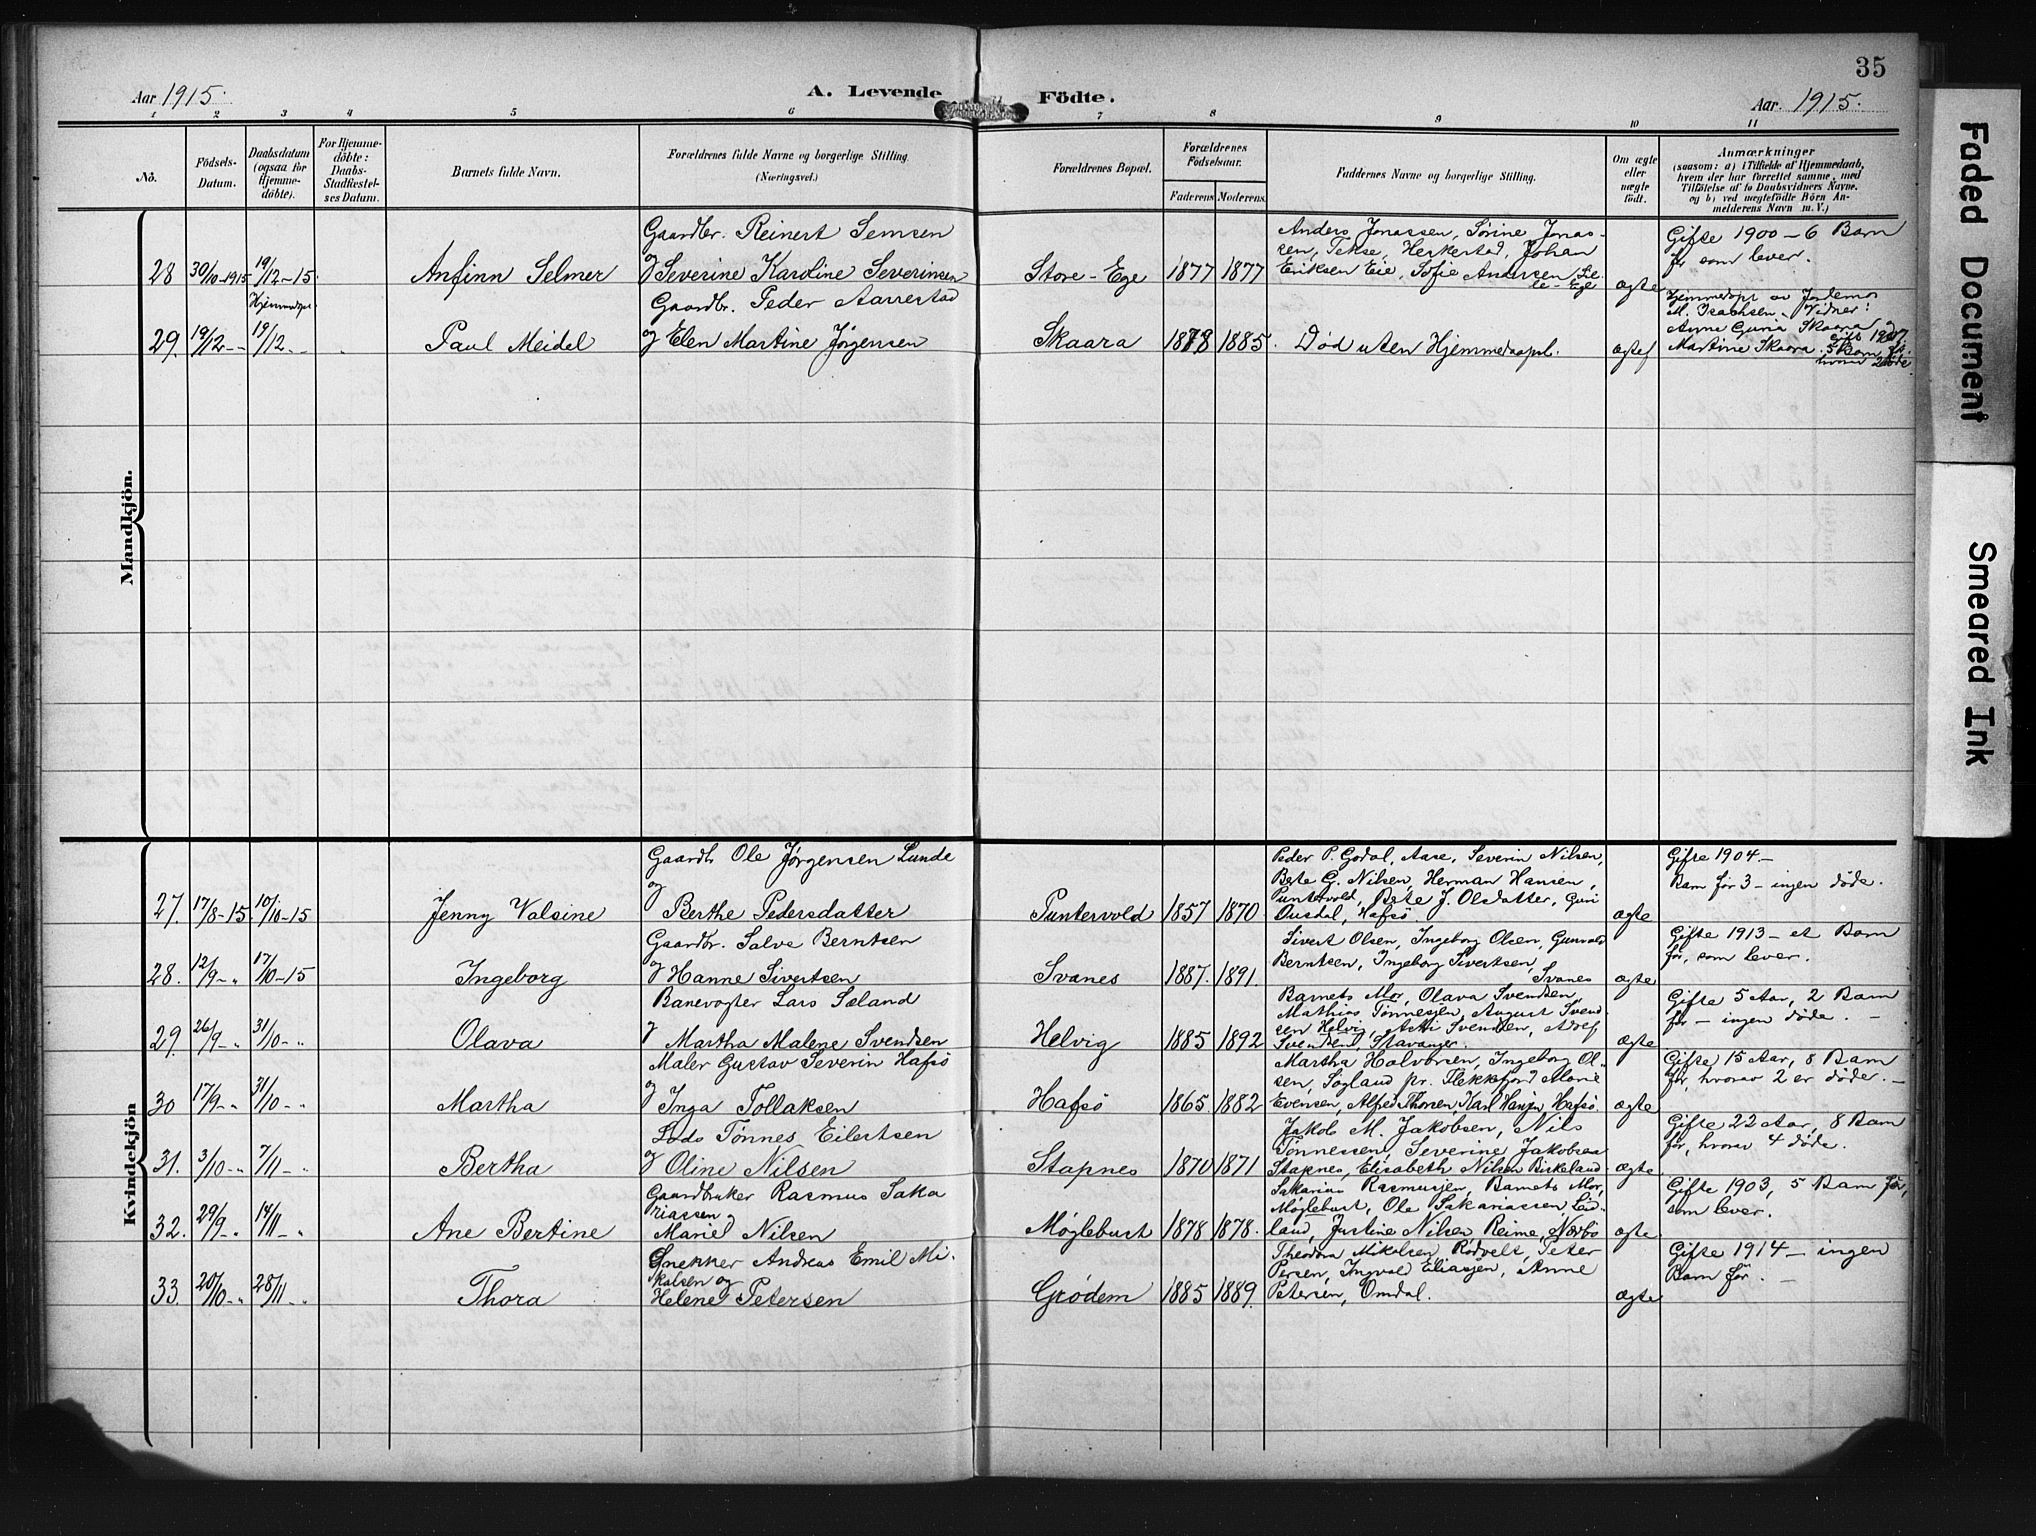 35
Aar 1915.
A. Levende Födte.
Aar 1915.
1 2 3 4 5 6 7 8 9 10 11
No.
Födsels-Datum.
Daabsdatum (ogsaa for Hjemme-döbte).
For Hjemme-döbte: Daabs-Stadfæstel-ses Datum.
Barnets fulde Navn.
Forældrenes fulde Navne og borgerlige Stilling. (Næringsvei.)
Forældrenes Bopæl.
Forældrenes Födselsaar.
Faderens Moderens.
Faddernes Navne og borgerlige Stilling.
Om ægte eller uægte födt.
Anmærkninger
(saasom: a) i Tilfælde af Hjemmedaab,
hvem der har forrettet samme, med
Tilföielse af to Daabsvidners Navne,
og b) ved uægtefödte Börn An-
melderens Navn m. V.)
Mandkjön.
28 30/10-1915 19/12-15. Anfinn Selmer
Gaardbr. Reinert Semsen
og Severine Karoline Severinsen
Store-Ege 1877 1877
Anders Jonassen, Sørine Jonas-
sen, Tekse, Herkestad, Johan
Eriksen Eie, Sofie Andersen Lil-
le-Ege
ægte
Gifte 1900 - 6 Barn
før som lever.
29. 19/12 - Hjemmedøpt 19/12 - Paul Meidel
Gaardbr. Peder Aarrestad
og Elen Martine Jørgensen
Skaara 1878 1885.
Død uten Hjemmedaapsl.
ægtef
Hjemmedøpt av Jordemor
M. Isachsen. Vidner:
Anne Guria Skaara og
Martine Skaara. gift 1907.
5 Barn før.
hvorav 2 døde.
Kvindekjön
27. 17/8-15 10/10-15 Jenny Valsine
Gaardb. Ole Jørgensen Lunde
og
Berthe Pedersdatter
Puntervold 1857 1870
Peder P. Godal, Aase, Severin Nilsen,
Bete G. Nilsen, Herman Hansen,
Puntervold, Bete J. Olsdatter, Guri
Ousdal, Hafsø.
ægte
Gifte 1904 -
Barn før 3 - ingen døde.
28. 12/9 - " 17/10-15 Ingeborg
Gaardbr. Salve Berntsen
og Hanne Sivertsen
Svanes 1887. 1891.
Sivert Olsen, Ingeborg Olsen, Gunvald
Berntsen, Ingeborg Sivertsen,
Svanes
ægte
Gifte 1913 - et Barn
før, som lever.
29. 26/9 - " 31/10 - " Olava
Banevogter Lars Sæland
og Martha Malene Svendsen
Helvig 1885 1892
Barnets Mor, Olava Svendsen,
Mathias Tønnesjen, August Svend-
sen Helvig, Atti Svendsen, Adolf
Svendsen, Stavanger.
ægte
Gifte 5 Aar, 2 Barn
før - ingen døde. -
30 17/9 - " 31/10 - " Martha
Maler Gustav Severin Hafsø
og
Inga Tollaksen
Hafsø 1865 1882
Martha Halvorsen, Ingeborg Ol-
sen, Søgland pr. Flekkfjord Marie
Evensen, Alfred Thorsen, Karl Hansen Hafsø.
ægte
Gifte 15 Aar, 8 Barn
før, hvorav 2 er døde. -
31. 3/10 - " 7/11 - " Bertha
Lods Tønnes Eilertsen
og Oline Nilsen
Stapnes 1870 1871
Jakob M. Jakobsen, Nils
Tønnessen, Severine Jakobsen
Stapnes, Elisabeth Nilsen Birkeland.
ægte
Gifte 22 Aar, 8 Barn
før, hvorav 4 døde.
32. 29/9 - " 14/11 - " Ane Bertine
Gaardbruker Rasmus Saka
riassen og
Marie Nilsen
Møglebust 1878 1878.
Sakarias Rasmusjen, Barnets Mor,
Møglebust, Ole Sakariassen, Lid-
land, Justine Nilsen Reime, Nærbø
ægte
Gifte 1903, 5 Barn før,
som lever.
33. 20/10 - " 28/11 - " Thora
Snekker Andreas Emil Mi-
kalsen og
Helene Petersen
Grødem 1885 1889.
Theodon Mikalsen, Rødvelt, Peter
Persen, Ingvald Eliasjen, Anne
Petersen, Omdal.
ægte
Gifte 1914 - ingen
Barn før. -
Faded Document
Smeared Ink